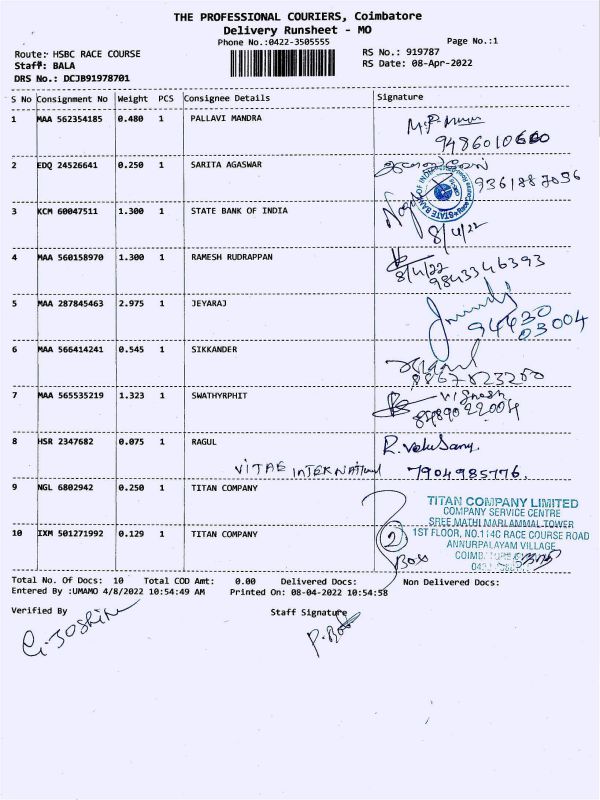 THE PROFESSIONAL COURIERS, Coimbatore
Delivery Runsheet - MO
Phone No.:0422-3505555
Page No.:1
Route: HSBC RACE COURSE
RS No.: 919787
Staff: BALA
RS Date: 08-Apr-2022
DRS No.: DCJB91978701
S No Consignment No Weight PCS Consignee Details Signature
1 MAA 562354185 0.480 1 PALLAVI MANDRA
9486010660
2 EDQ 24526641 0.250 1 SARITA AGASWAR
9361887056
3 KCM 60047511 1.300 1 STATE BANK OF INDIA
8/4/22
4 MAA 560158970 1.300 1 RAMESH RUDRAPPAN
8/4/22
9843346393
5 MAA 287845463 2.975 1 JEYARAJ
94430
03004
6 MAA 566414241 0.545 1 SIKKANDER
7 MAA 565535219 1.323 1 SWATHYRPHIT
Vignesh
8 HSR 2347682 0.075 1 RAGUL
R. Velusamy
VITAE INTERNATIONAL 7904985776.
9 NGL 6802942 0.250 1 TITAN COMPANY
TITAN COMPANY LIMITED
COMPANY SERVICE CENTRE
SREE MATHI MARIAMMAL TOWER
10 IXM 501271992 0.129 1 TITAN COMPANY
2
1ST FLOOR, NO.114C RACE COURSE ROAD
ANNURPALAYAM VILLAGE
Total No. Of Docs: 10 Total COD Amt: 0.00 Delivered Docs: Non Delivered Docs:
Entered By :UMAMO 4/8/2022 10:54:49 AM Printed On: 08-04-2022 10:54:58
Verified By
Staff Signature
G. Joshin